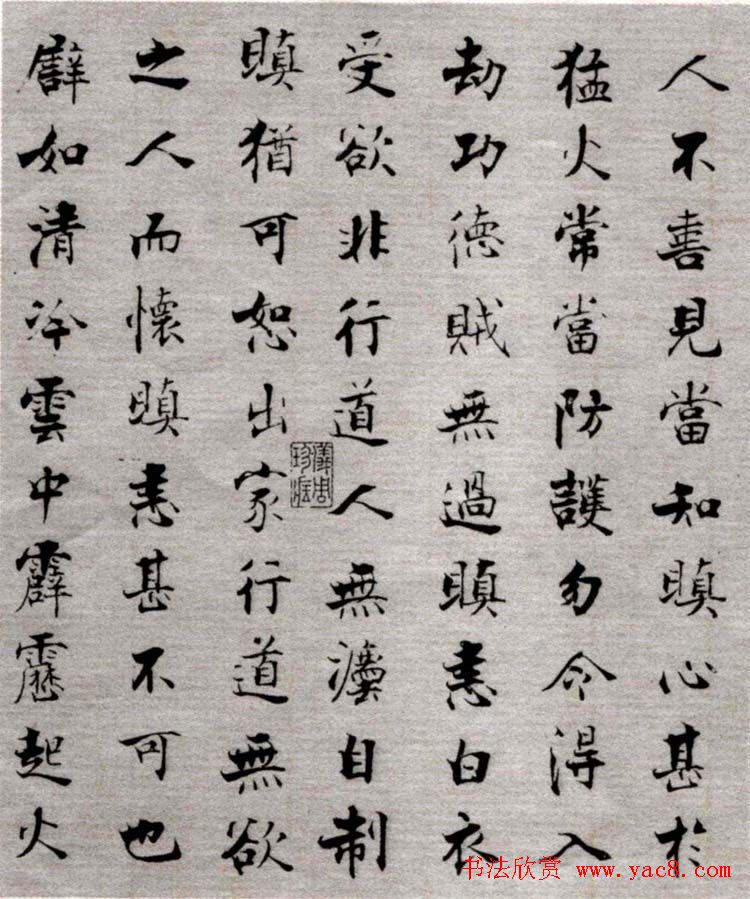 人不善見當知瞋心甚於
猛火常當防護勿令得入
劫功德賊無過瞋恚白衣
受欲非行道人無灋自制
瞋猶可恕出家行道無欲
之人而懷瞋恚甚不可也
譬如清冷雲中霹靂起火
儀周珍藏
书法欣赏 www.yac8.com